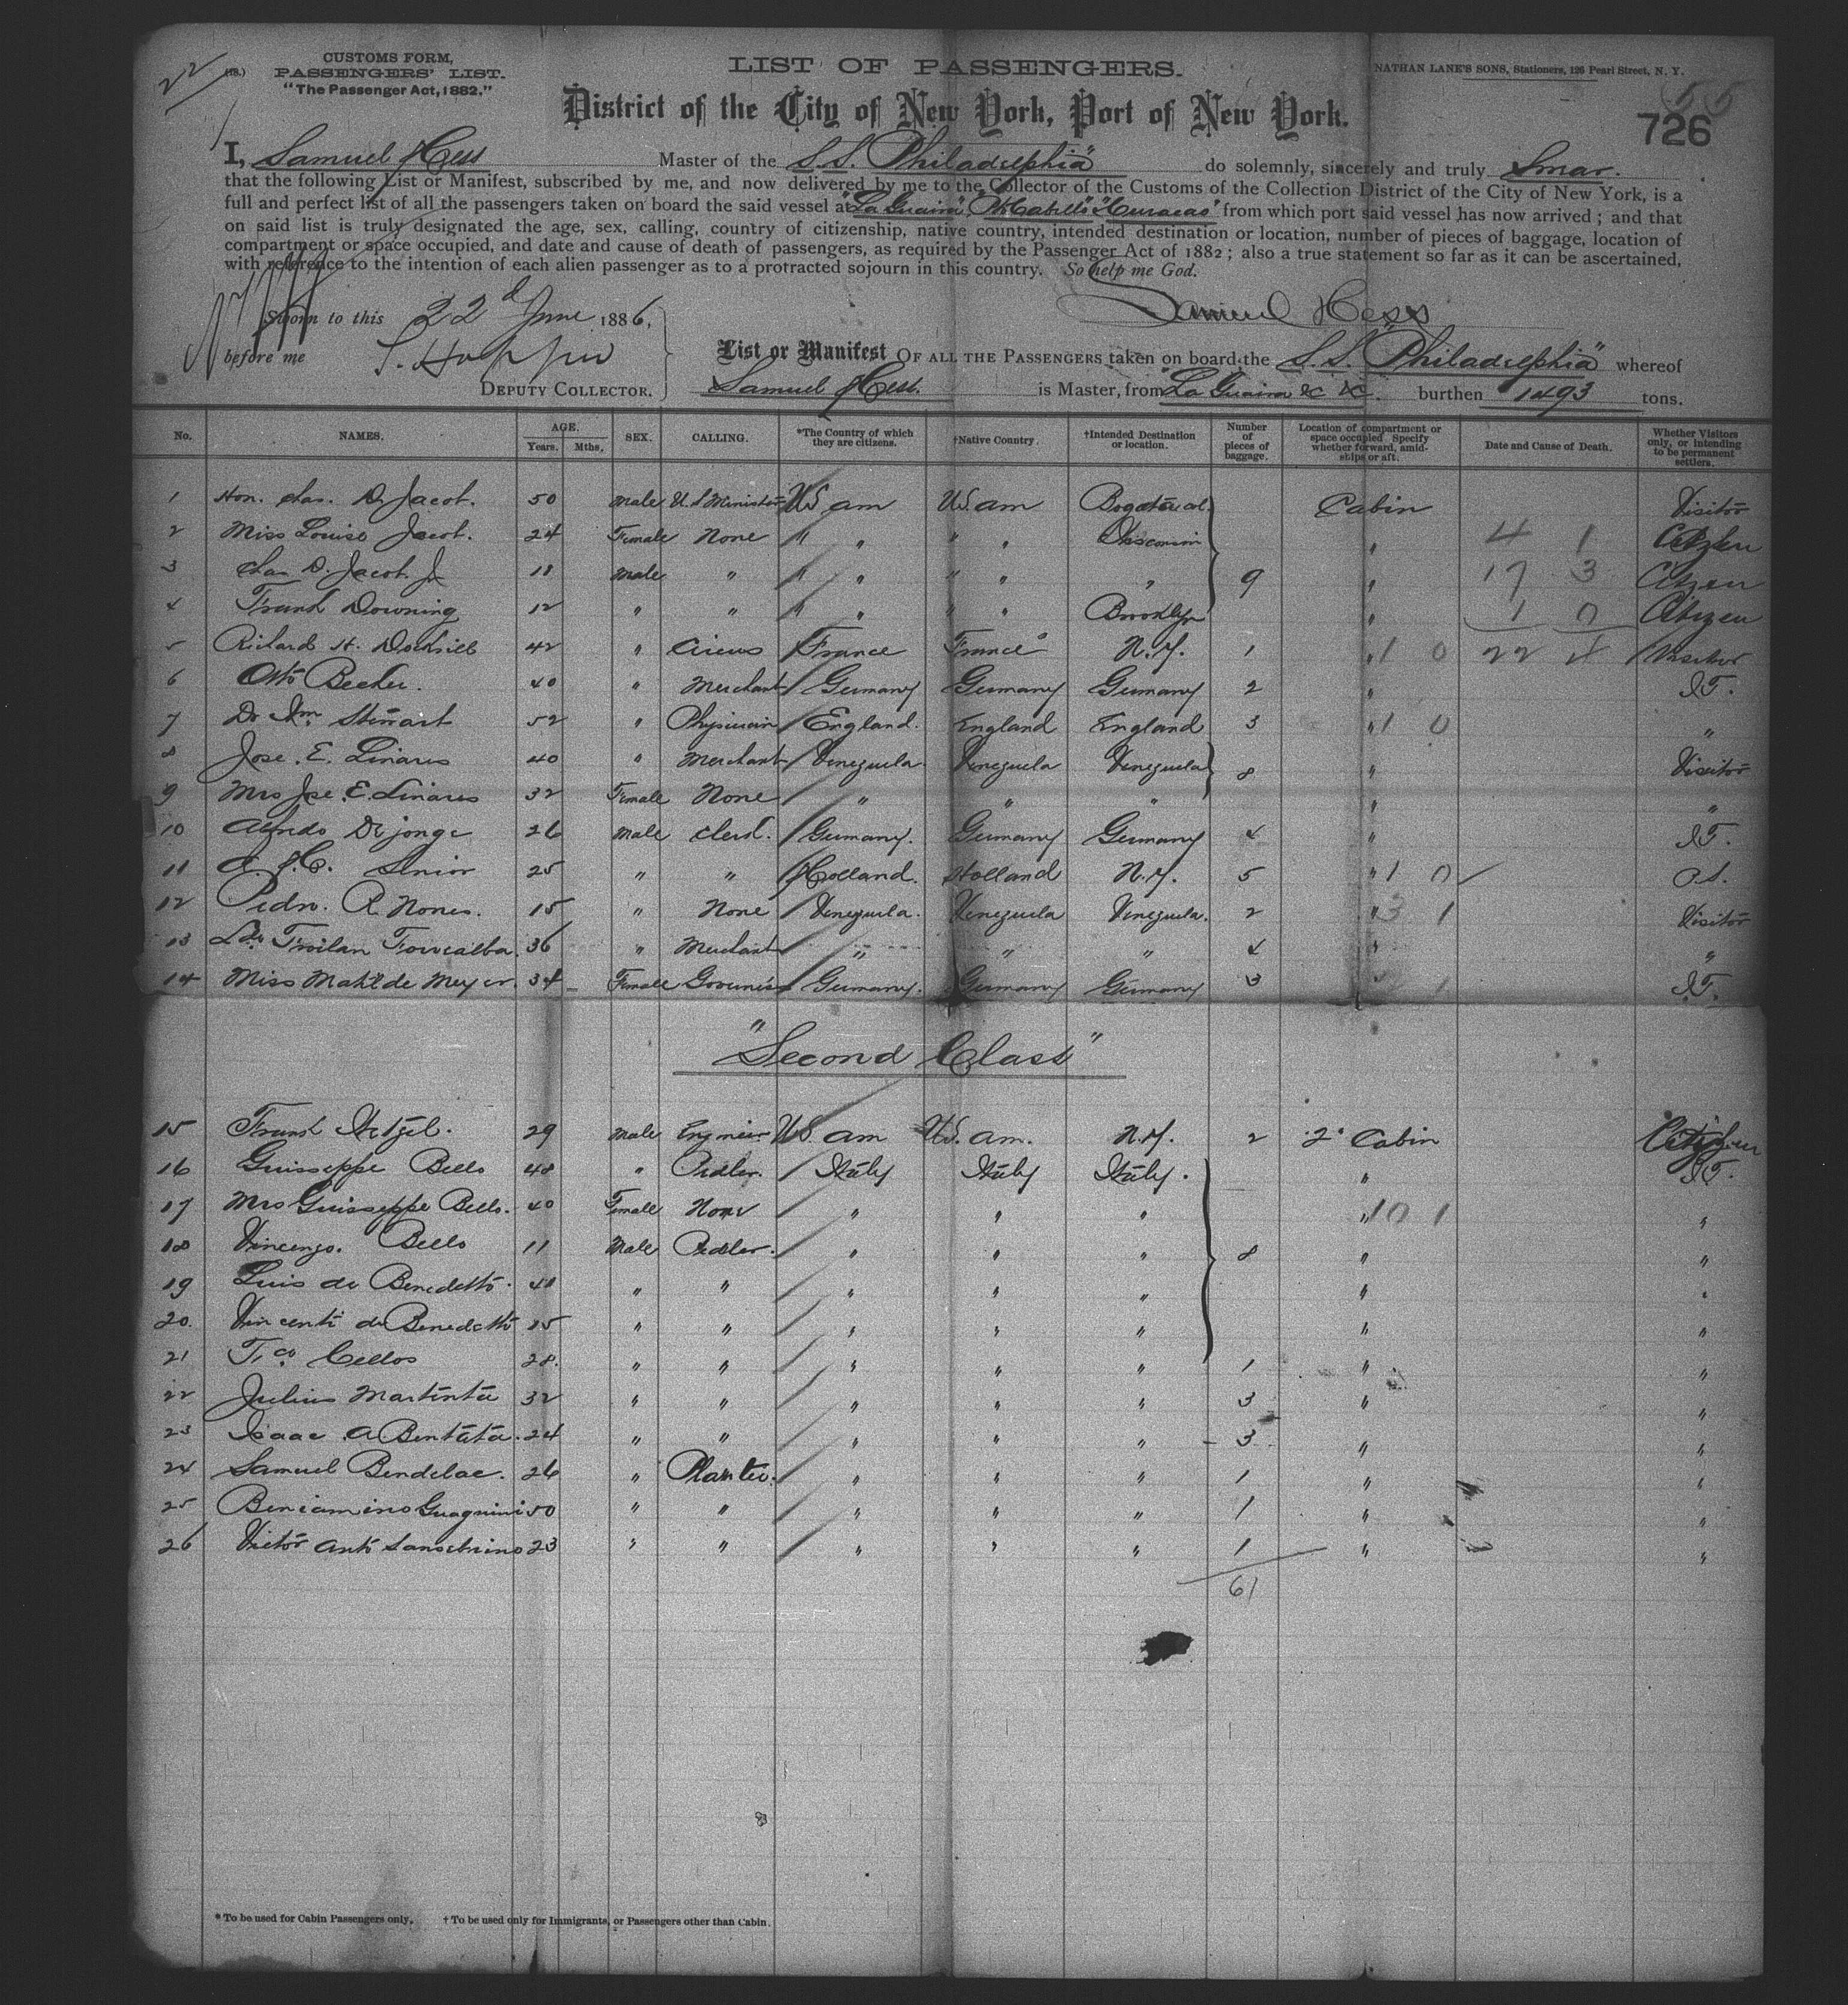 22
(18.)
CUSTOMS FORM,
PASSENGERS' LIST.
"The Passenger Act, 1882."
LIST OF PASSENGERS.
NATHAN LANE'S SONS, Stationers, 126 Pearl Street, N. Y.
District of the City of New York, Port of New York.
726
I, Samuel Hess Master of the S.S. "Philadelphia" do solemnly, sincerely and truly Swear.
that the following List or Manifest, subscribed by me, and now delivered by me to the Collector of the Customs of the Collection District of the City of New York, is a
full and perfect list of all the passengers taken on board the said vessel at "La Guaira" "P. Cabello" "Curacao" from which port said vessel has now arrived; and that
on said list is truly designated the age, sex, calling, country of citizenship, native country, intended destination or location, number of pieces of baggage, location of
compartment or space occupied, and date and cause of death of passengers, as required by the Passenger Act of 1882; also a true statement so far as it can be ascertained,
with reference to the intention of each alien passenger as to a protracted sojourn in this country. So help me God.
Samuel Hess
Sworn to this 22d June 1886,
before me
DEPUTY COLLECTOR.
List or Manifest OF ALL THE PASSENGERS taken on board the S.S. "Philadelphia" whereof
Samuel Hess. is Master, from "La Guaira &c &c. burthen 1493 tons.
No. NAMES. AGE. Years. Mths. SEX. CALLING. *The Country of which they are citizens. †Native Country. †Intended Destination or location. Number of pieces of baggage. Location of compartment or space occupied. Specify whether forward, amidships or aft. Date and Cause of Death. Whether Visitors only, or intending to be permanent settlers.
1 Hon. Chas. D. Jacob. 50 Male U.S Minister US am US am Cabin Visitor
2 Miss Louise Jacob. 24 Female None " " " " " 4 1 Citizen
3 Chas D. Jacob Jr 18 Male " " " " " " 9 " 17 3 Citizen
4 Frank Downing 12 " " " " " " Brooklyn " 1 0 Citizen
5 Richard H. Dockrill 42 " Circus France France N.Y. 1 " 1 0 22 4 Visitor
6 Otto Becker. 40 " Merchant Germany Germany Germany 2 " I.T.
7 Dr Wm Stewart 52 " Physician England. England England 3 " 1 0 "
8 Jose. E. Linares 40 " Merchant Venezuela Venezuela Venezuela 8 " Visitor
9 Mrs Jose E. Linares 32 Female None " " " " "
10 Alfredo De jonge 26 Male Clerk. Germany. Germany Germany 4 " I.T.
11 Senior 25 " " Holland. Holland N.Y. 5 " 1 0 P.S.
12 Pedro. R. Nones. 15 " None Venezuela. Venezuela Venezuela. 2 " 3 1 Visitor
13 36 " Merchant " " " 4 " "
14 Miss Matilde Meyer. 34 Female Governess Germany. Germany Germany 3 " I.T.
"Second Class"
15 Frank Wetzel. 29 Male Engineer US. am US. am. N.Y. 2 2d Cabin Citizen
16 Guisseppe Bello 48 " Pedler. Italy Italy Italy. " I.T.
17 Mrs Guisseppe Bello. 40 Female None " " " " 10 1 "
18 Vincenzo. Bello 11 Male Pedler. " " " 8 " "
19 Luis de Benedetto. 41 " " " " " " "
20. Vincenti de Benedetto 15 " " " " " " "
21 Fco. Cellos 28. " " " " " 1 " "
22 Julius 32 " " " " " 3 " "
23 Isaac A Bentata. 24 " " " " " 3 " "
24 Samuel Bendelac. 26 " Planter. " " " 1 " "
25 Beniamino Guagnini 50 " " " " " 1 " "
26 Victor Anto 23 " " " " " 1 " "
61
* To be used for Cabin Passengers only. † To be used only for Immigrants, or Passengers other than Cabin.